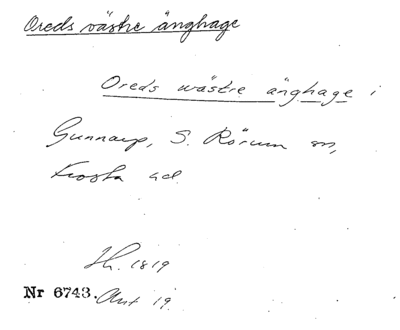 Oreds västre änghage
Oreds wästre änghage i
Gunnarp, S. Rörum sn,
Frosta hd
1819
Nr 6743. Akt 19.